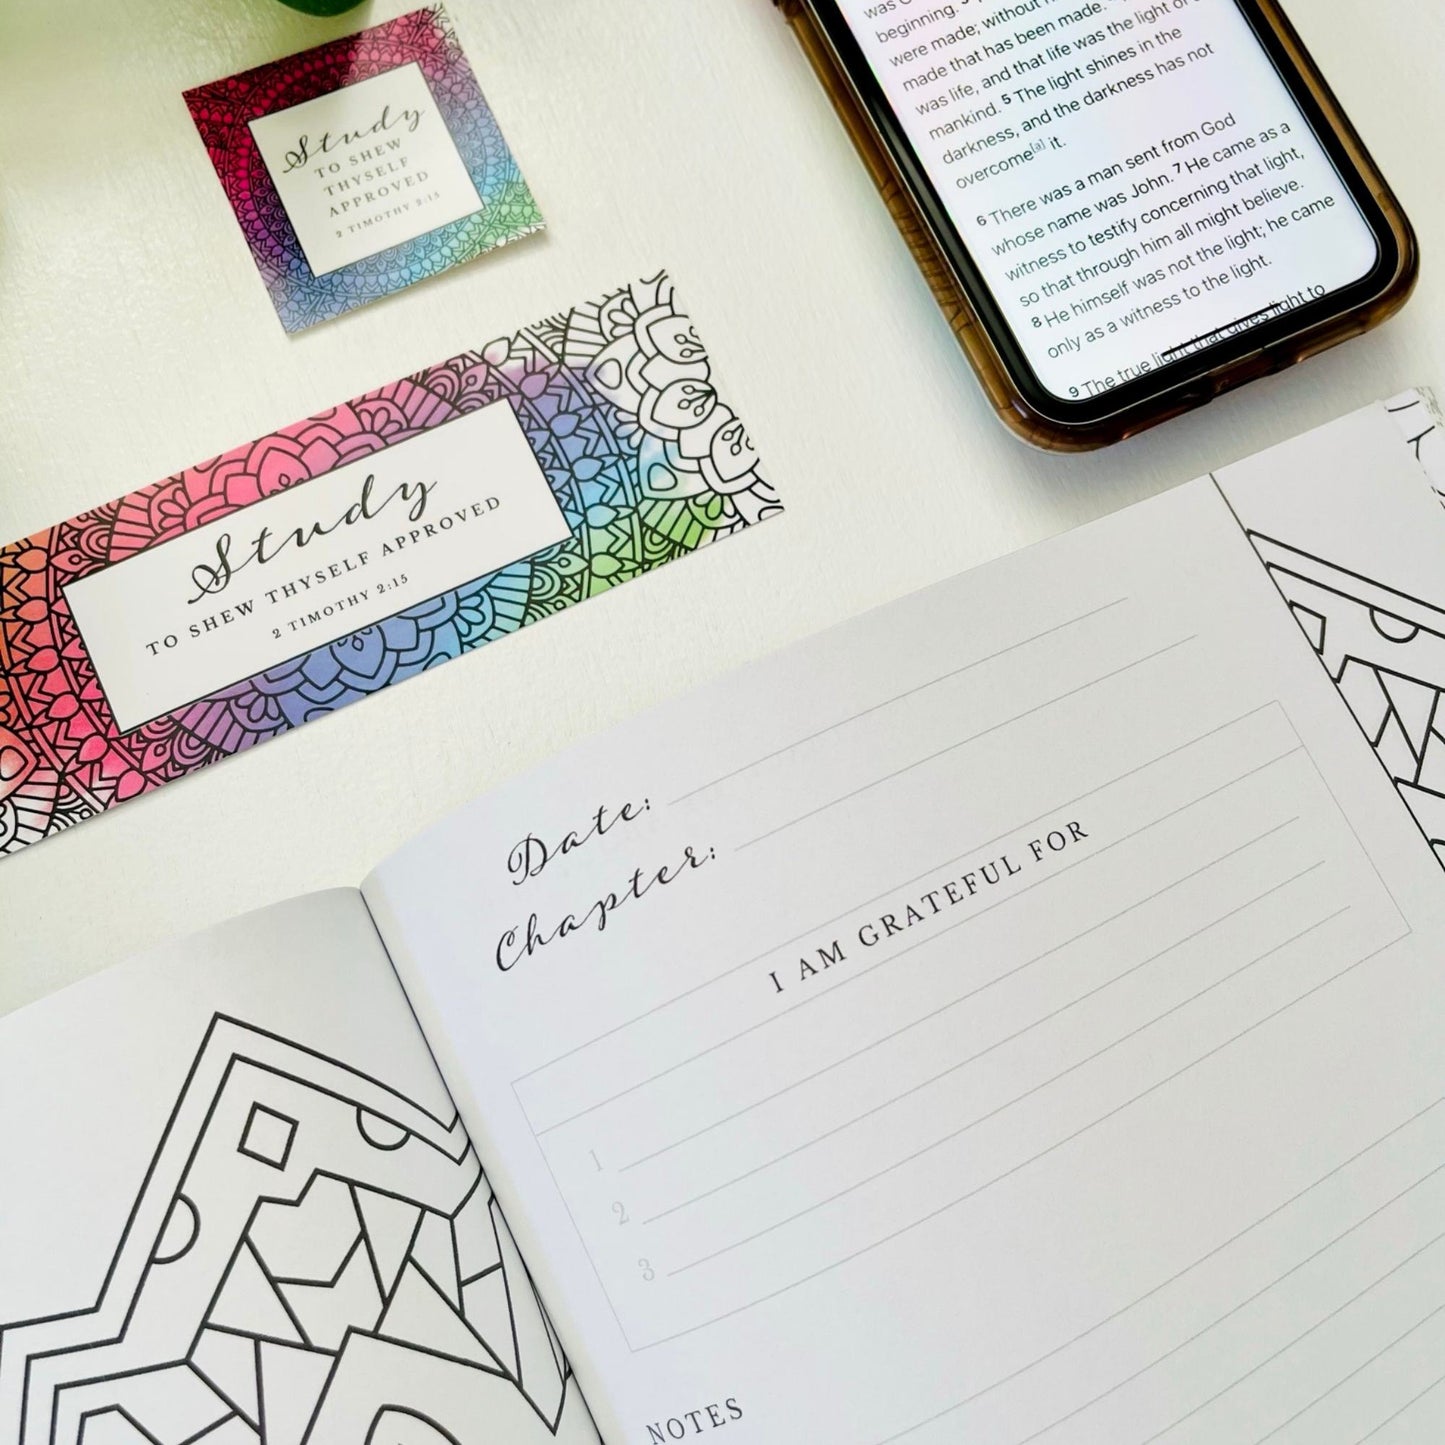 Study
TO SHEW
THYSELF
APPROVED
2 TIMOTHY 2:15
Study
TO SHEW THYSELF APPROVED
2 TIMOTHY 2:15
was
beginning.
were made; without
made that has been made.
was life, and that life was the light of
mankind. 5 The light shines in the
darkness, and the darkness has not
overcome[a] it.
6 There was a man sent from God
whose name was John. 7 He came as a
witness to testify concerning that light,
so that through him all might believe.
8 He himself was not the light; he came
only as a witness to the light.
9 The true light that gives light to
Date:
Chapter:
I AM GRATEFUL FOR
1
2
3
NOTES